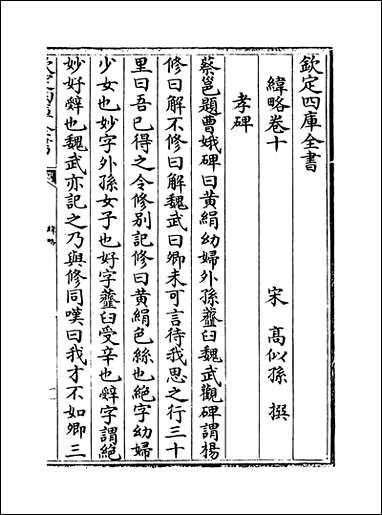 欽定四庫全書
緯略卷十
宋 高似孫 撰
孝碑
蔡邕題曹娥碑曰黃絹幼婦外孫虀臼魏武觀碑謂楊
修曰解不修曰解魏武曰卿未可言待我思之行三十
里曰吾已得之令修别記修曰黃絹色絲也絕字幼婦
少女也妙字外孫女子也好字虀臼受辛也辤字謂絕
妙好辤也魏武亦記之乃與修同嘆曰我才不如卿三